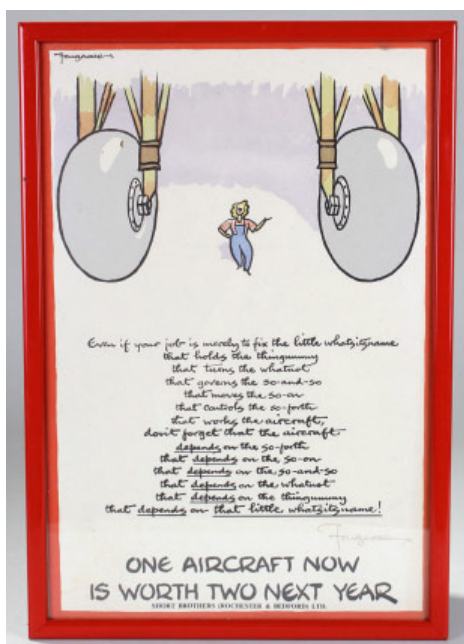 Fougasse
Even if your job is merely to fix the little whatsitsname
that holds the thingummy
that turns the whatnot
that governs the so-and-so
that moves the so-on
that controls the so-forth
that works the aircraft,
don't forget that the aircraft
depends on the so-forth
that depends on the so-on
that depends on the so-and-so
that depends on the whatnot
that depends on the thingummy
that depends on that little whatsitsname!
Fougasse
ONE AIRCRAFT NOW
IS WORTH TWO NEXT YEAR
SHORT BROTHERS (ROCHESTER & BEDFORD) LTD.